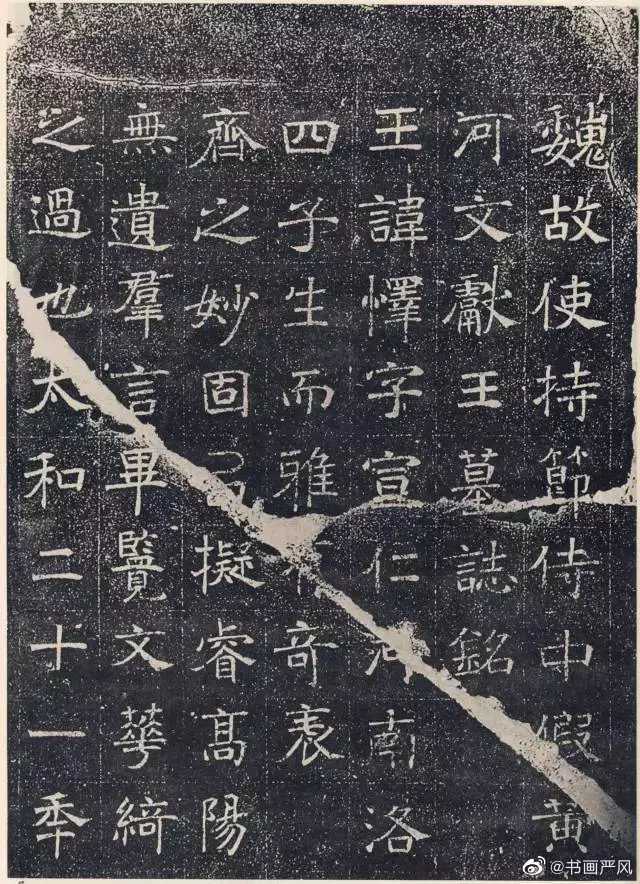 魏故使持節侍中假黃
河文獻王墓誌銘
王諱懌字宣仁河南洛
四子生而雅有奇表
齊之妙固以擬睿高陽
無遺羣言畢覽文華綺
之過也太和二十一年
@书画严风